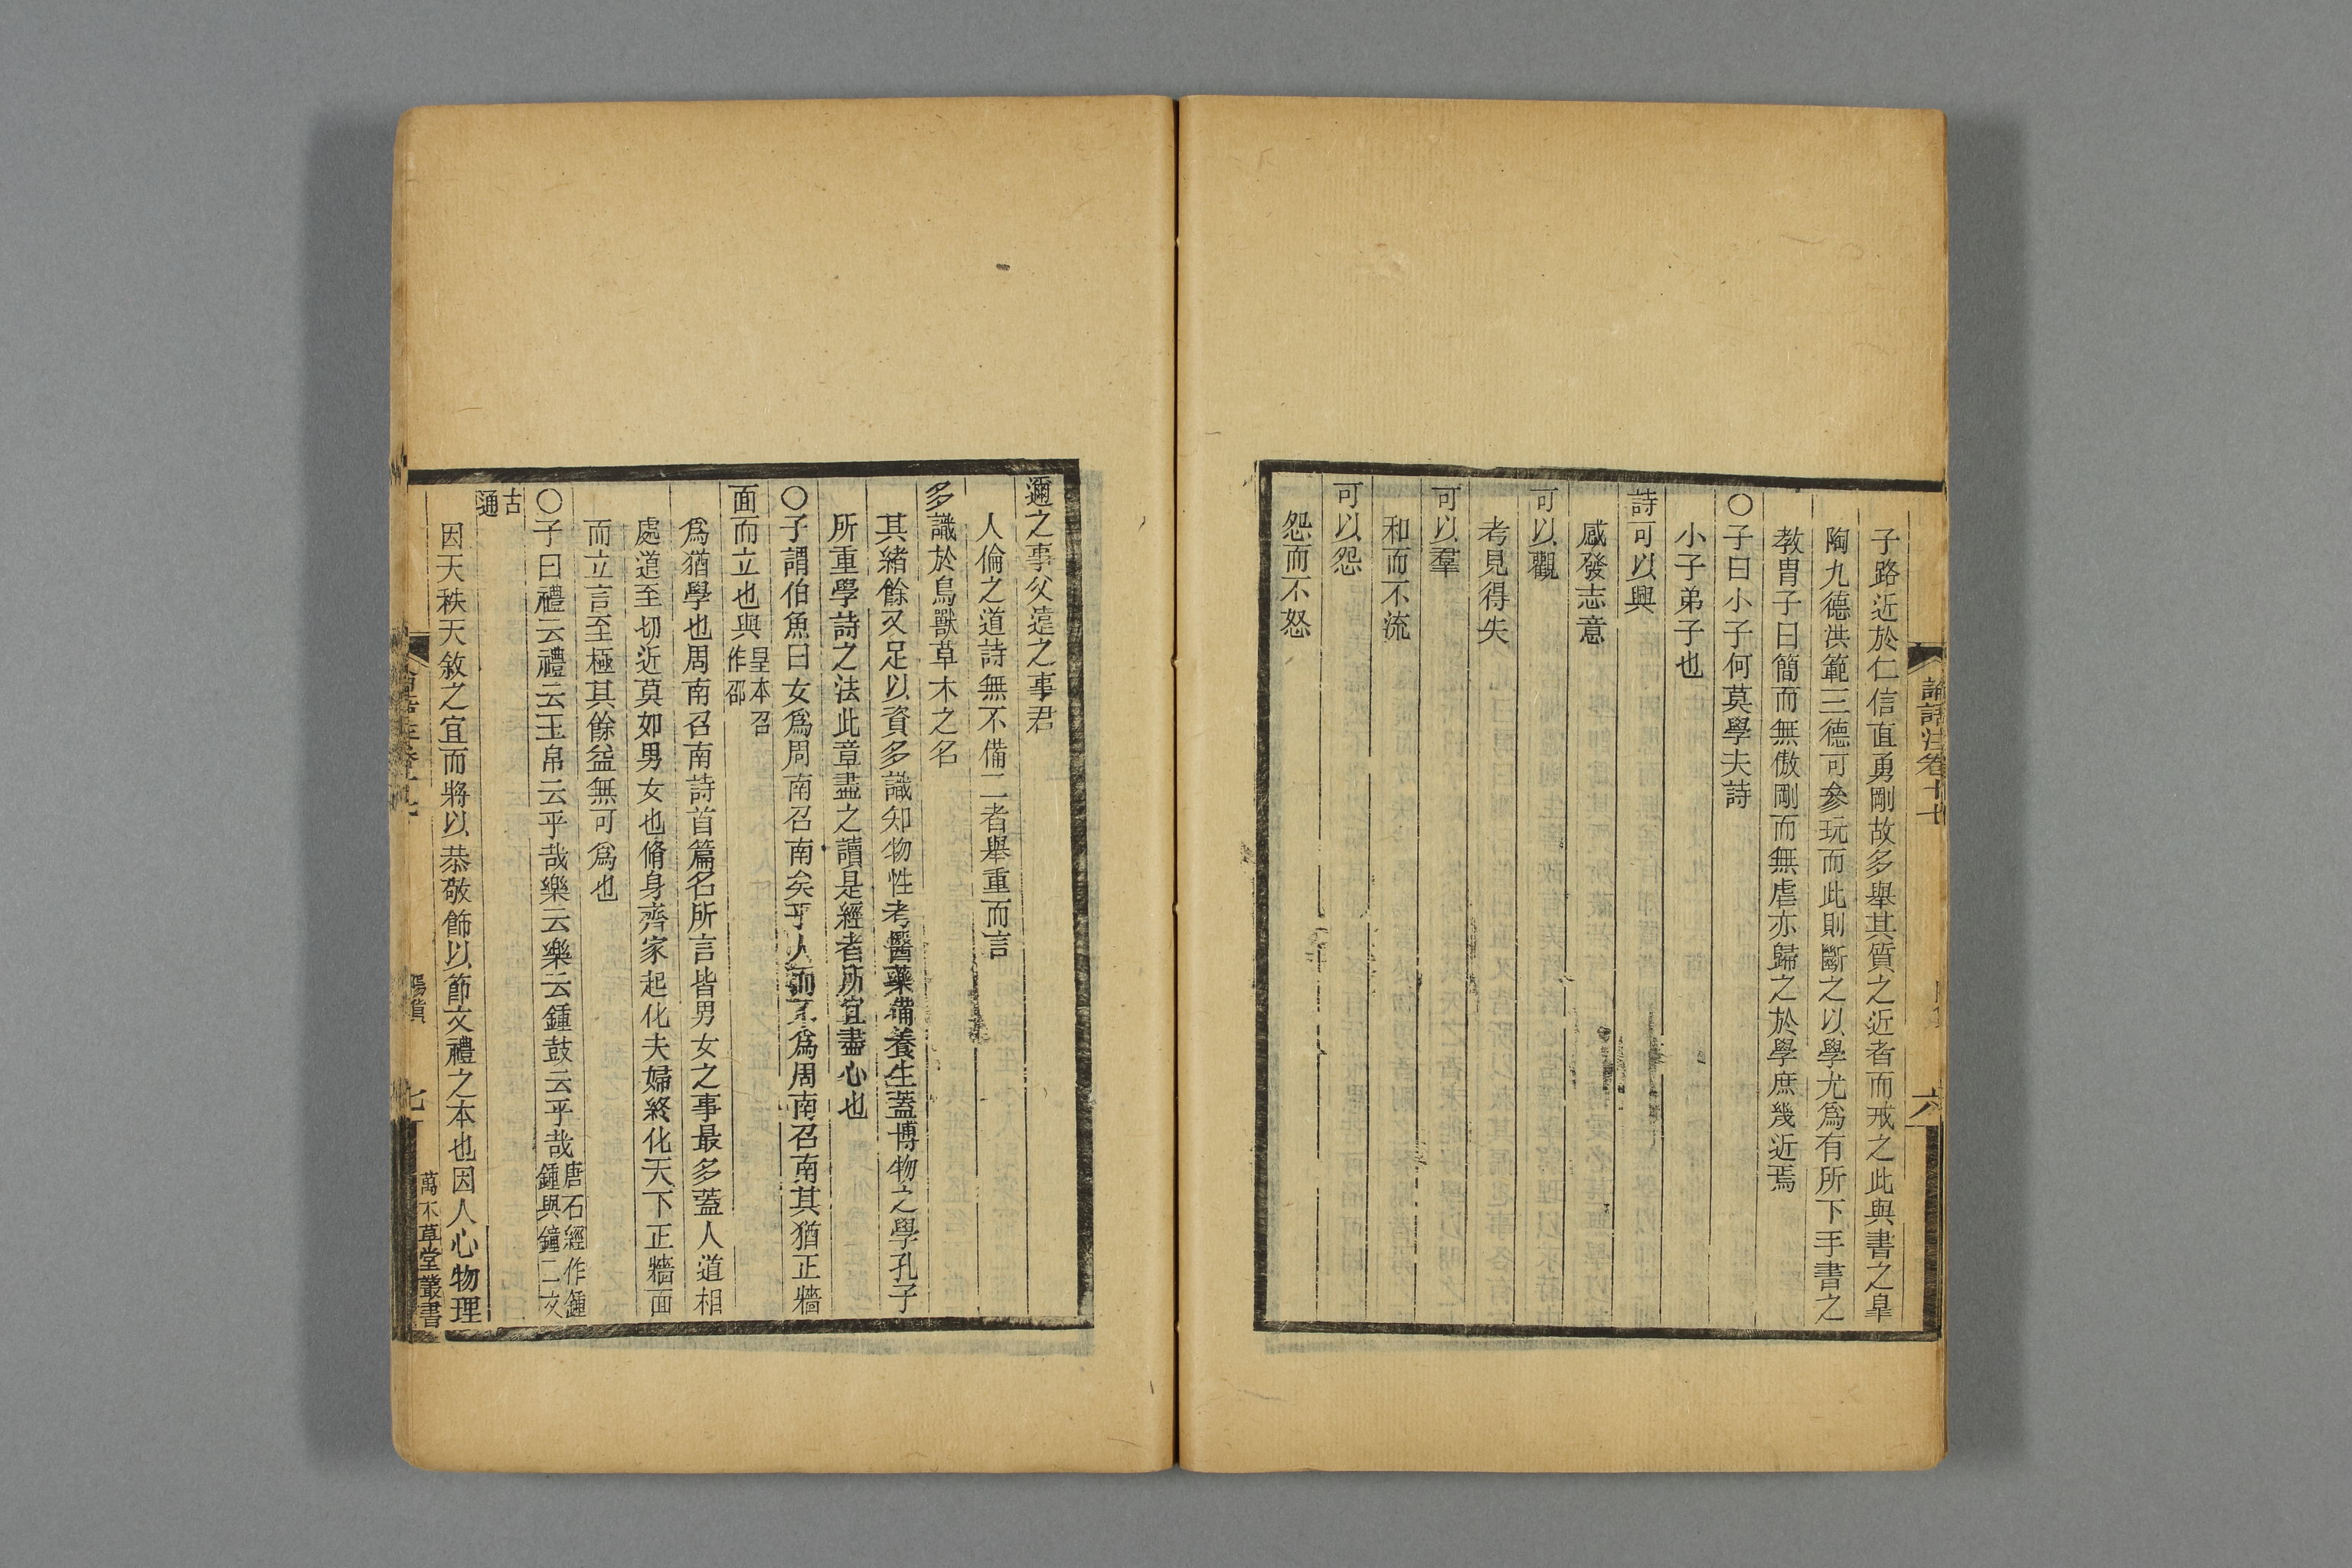 論語注卷十七
六
子路近於仁信直勇剛故多舉其質之近者而戒之此與書之皐
陶九德洪範三德可參玩而此則斷之以學尤爲有所下手書之
教胄子曰簡而無傲剛而無虐亦歸之於學庶幾近焉
○子曰小子何莫學夫詩
小子弟子也
詩可以興
感發志意
可以觀
考見得失
可以羣
和而不流
可以怨
怨而不怒
邇之事父遠之事君
人倫之道詩無不備二者舉重而言
多識於鳥獸草木之名
其緒餘又足以資多識知物性考醫藥備養生蓋博物之學孔子
所重學詩之法此章盡之讀是經者所宜盡心也
○子謂伯魚曰女爲周南召南矣乎人而不爲周南召南其猶正牆
面而立也與皇本召作邵
爲猶學也周南召南詩首篇名所言皆男女之事最多蓋人道相
處道至切近莫如男女也脩身齊家起化夫婦終化天下正牆面
而立言至極其餘益無可爲也
○子曰禮云禮云玉帛云乎哉樂云樂云鍾鼓云乎哉唐石經作鍾鍾與鐘二文
古通
因天秩天敘之宜而將以恭敬飾以節文禮之本也因人心物理
陽貨
七
萬木草堂叢書